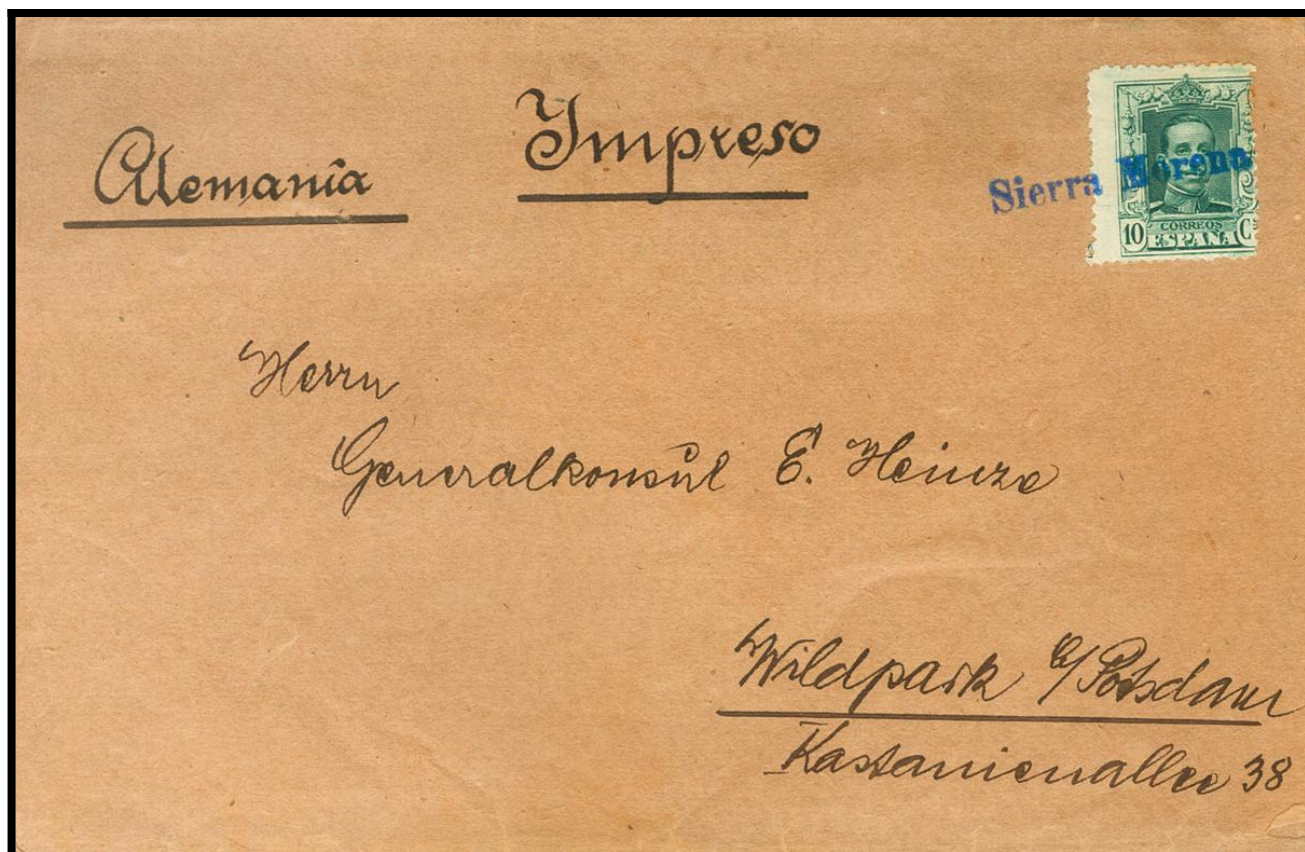 Alemanía
Impreso
Sierra Morena
CORREOS
10 ESPAÑA C
Herrn
Generalkonsul E. Heinze
Wildpark b/Potsdam
Kastanienallee 38